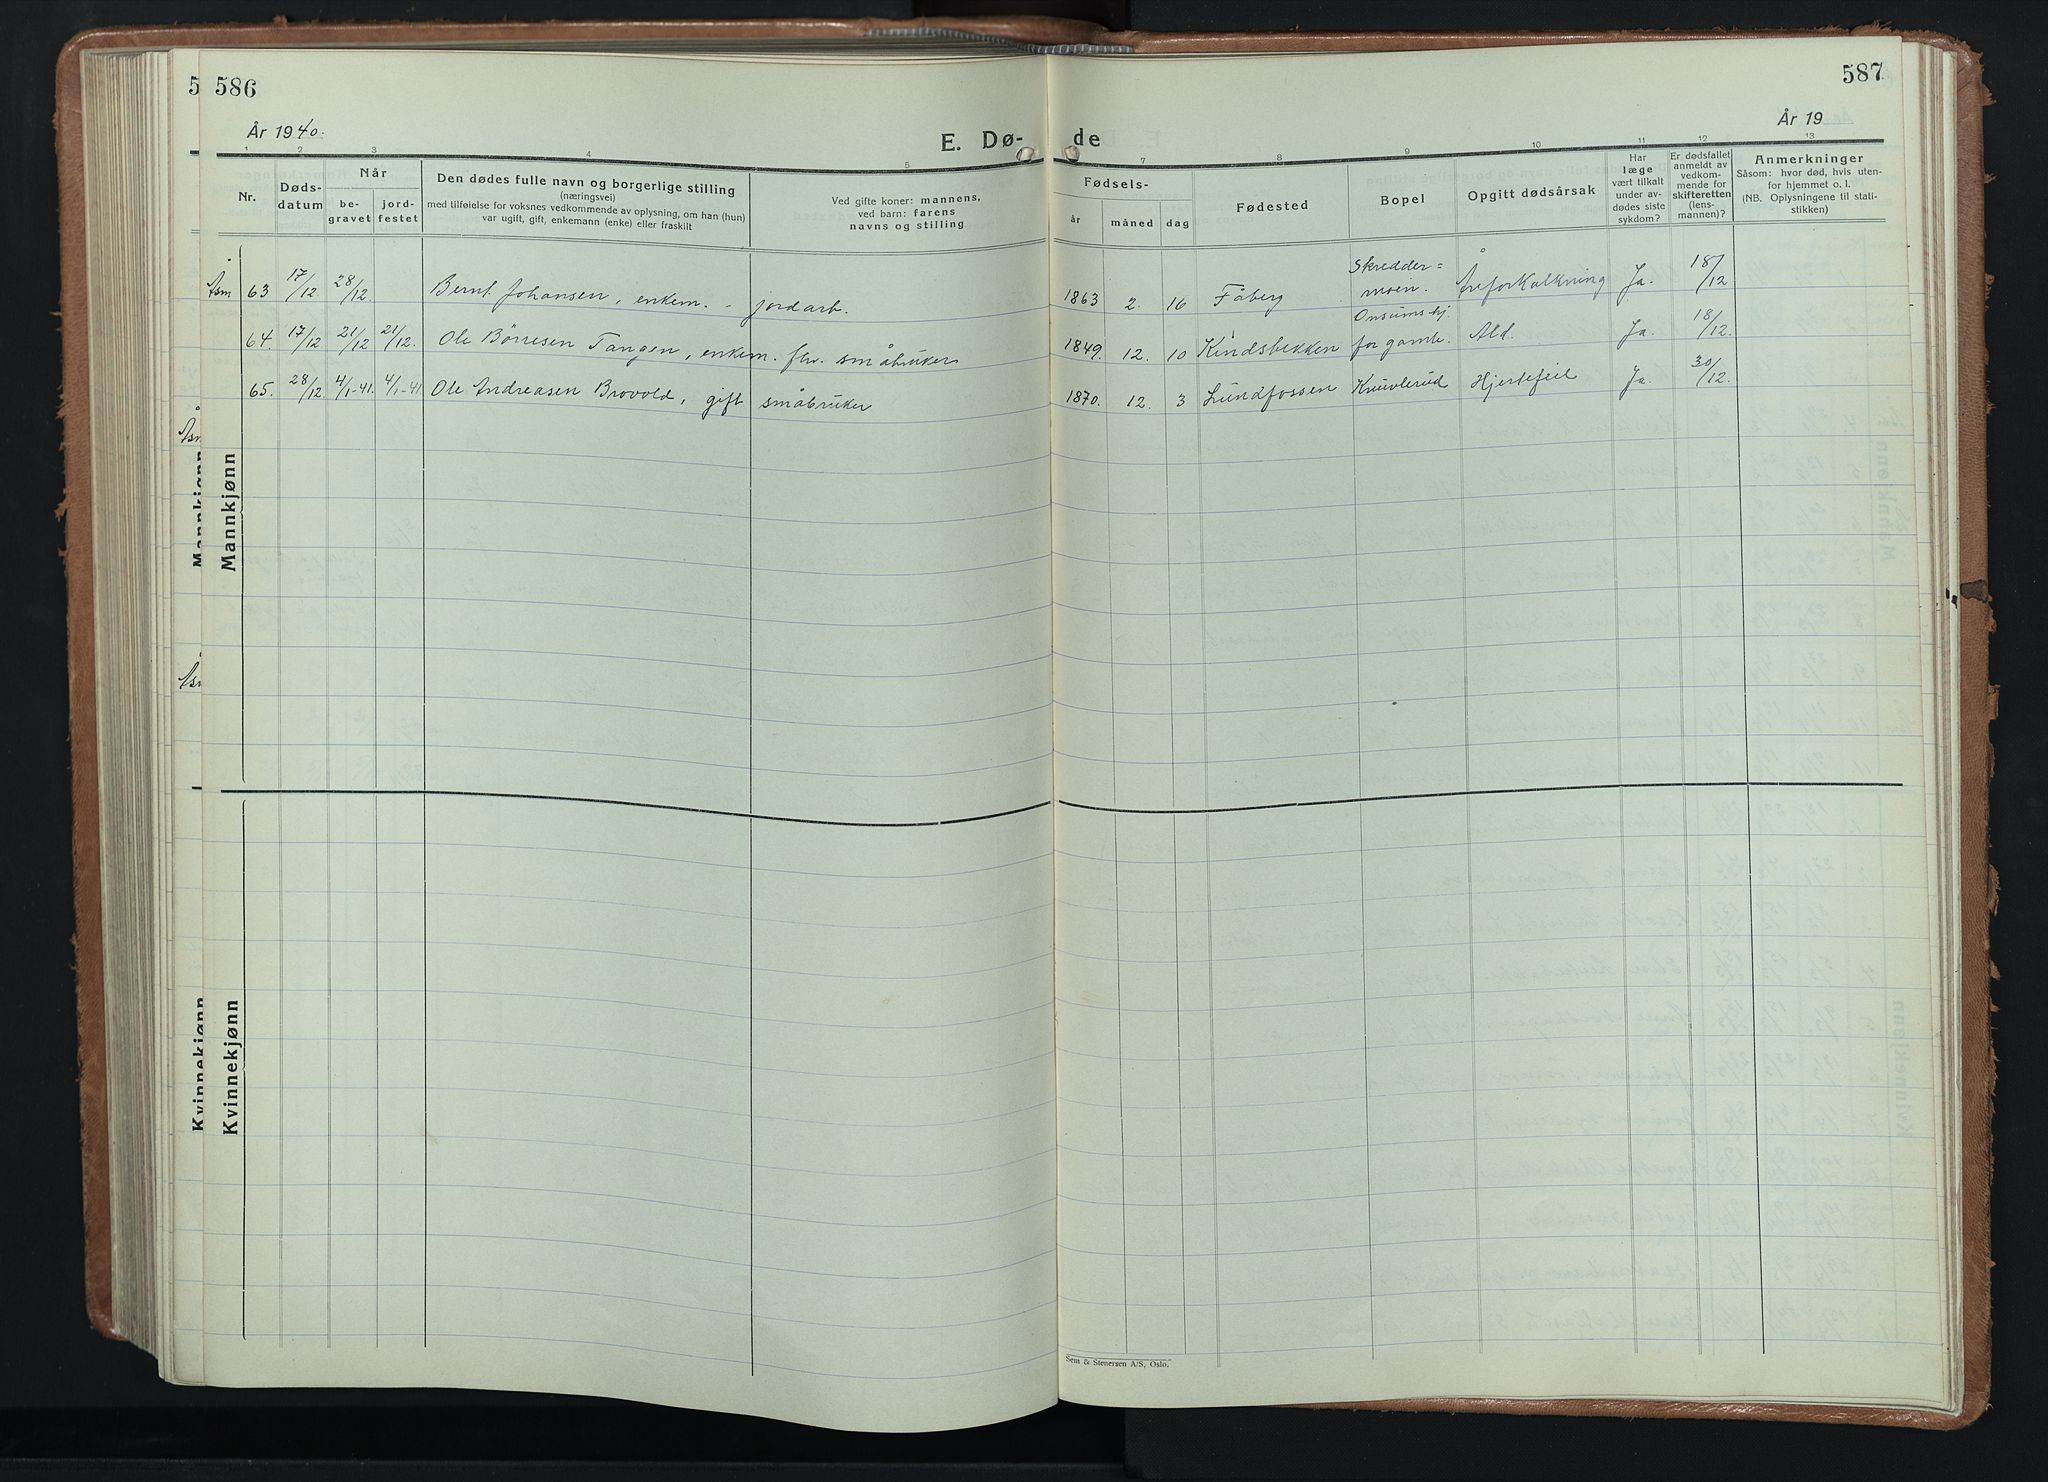 586
587
År 1940.
E. Dø- de
År 19
1 2 3 4 5 7 8 9 10 11 12 13
Nr.
Døds-
datum
Når
be-
gravet
jord-
festet
Den dødes fulle navn og borgerlige stilling
(næringsvei)
med tilføielse for voksnes vedkommende av oplysning, om han (hun)
var ugift, gift, enkemann (enke) eller fraskilt
Ved gifte koner: mannens,
ved barn: farens
navns og stilling
Fødsels-
år måned dag
Fødested
Bopel
Opgitt dødsårsak
Har
læge
vært tilkalt
under av-
dødes siste
sykdom?
Er dødsfallet
anmeldt av
vedkom-
mende for
skifteretten
(lens-
mannen)?
Anmerkninger
Såsom: hvor død, hvis uten-
for hjemmet o. l.
(NB. Oplysningene til stati-
stikken)
Åsm 63 17/12. 28/12. Bernt Johansen, enkem. - jordarb. 1863 2. 16 Fåberg Skredder=
moen. Åreforkalkning Ja. 18/12
64. 17/12 21/12 21/12. Ole Børresen Tangen, enkem. fhv. småbruker 1849. 12. 10 Kindsbekken Onsumshj.
for gamle. Ald. Ja. 18/12.
65. 28/12. 4/1-41. 4/1-41. Ole Andreasen Brovold, gift småbruker 1870. 12. 3 Lundfossen Knuvlerud Hjertefeil Ja. 30/12.
Mannkjønn
Kvinnekjønn
Sem & Stenersen A/S, Oslo.